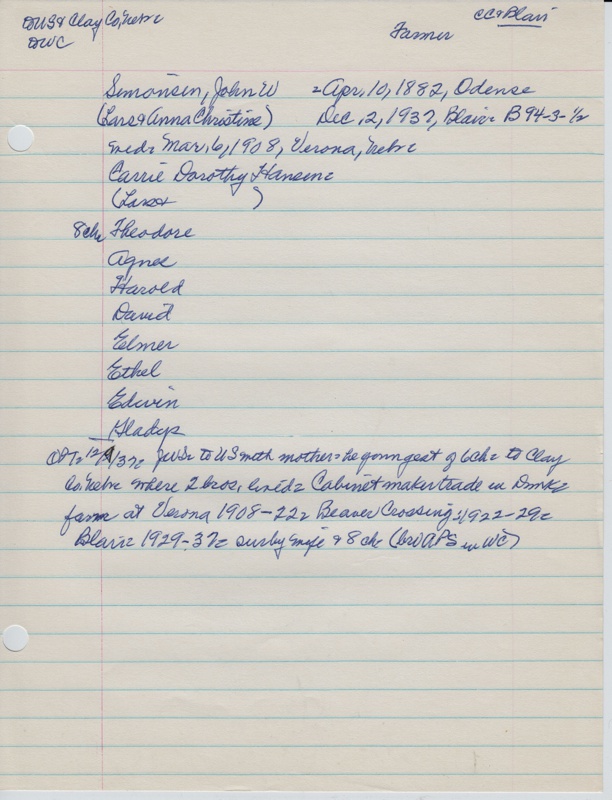 DUS & Clay Co, Nebr
DWC
CC & Blair
Farmer
Simonsen, John W = Apr. 10, 1882, Odense
(Lars & Anna Christine) Dec. 2, 1937, Blair B94-3-½
Mar. 6, 1908, Verona, Nebr
Carrie Dorothy Hansen
(Lars & )
8 ch Theodore
Agnes
Harold
David
Elmer
Ethel
Edwin
Gladys
12/9/37 JWS to US with mother the youngest of 6 ch to Clay
Co, Nebr where 2 bros. lived Cabinet maker trade in Dmk
farm at Verona 1908-22 Beaver Crossing 1922-29
Blair 1929-37 surby wife & 8 ch (bro APS in WC)